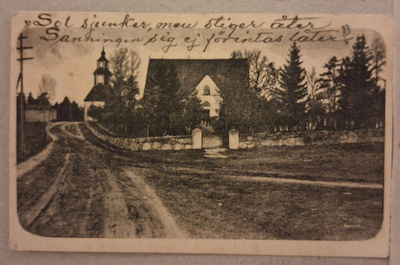 „Sol sjunker, men stiger åter
Sanningen sig ej förintas låter."